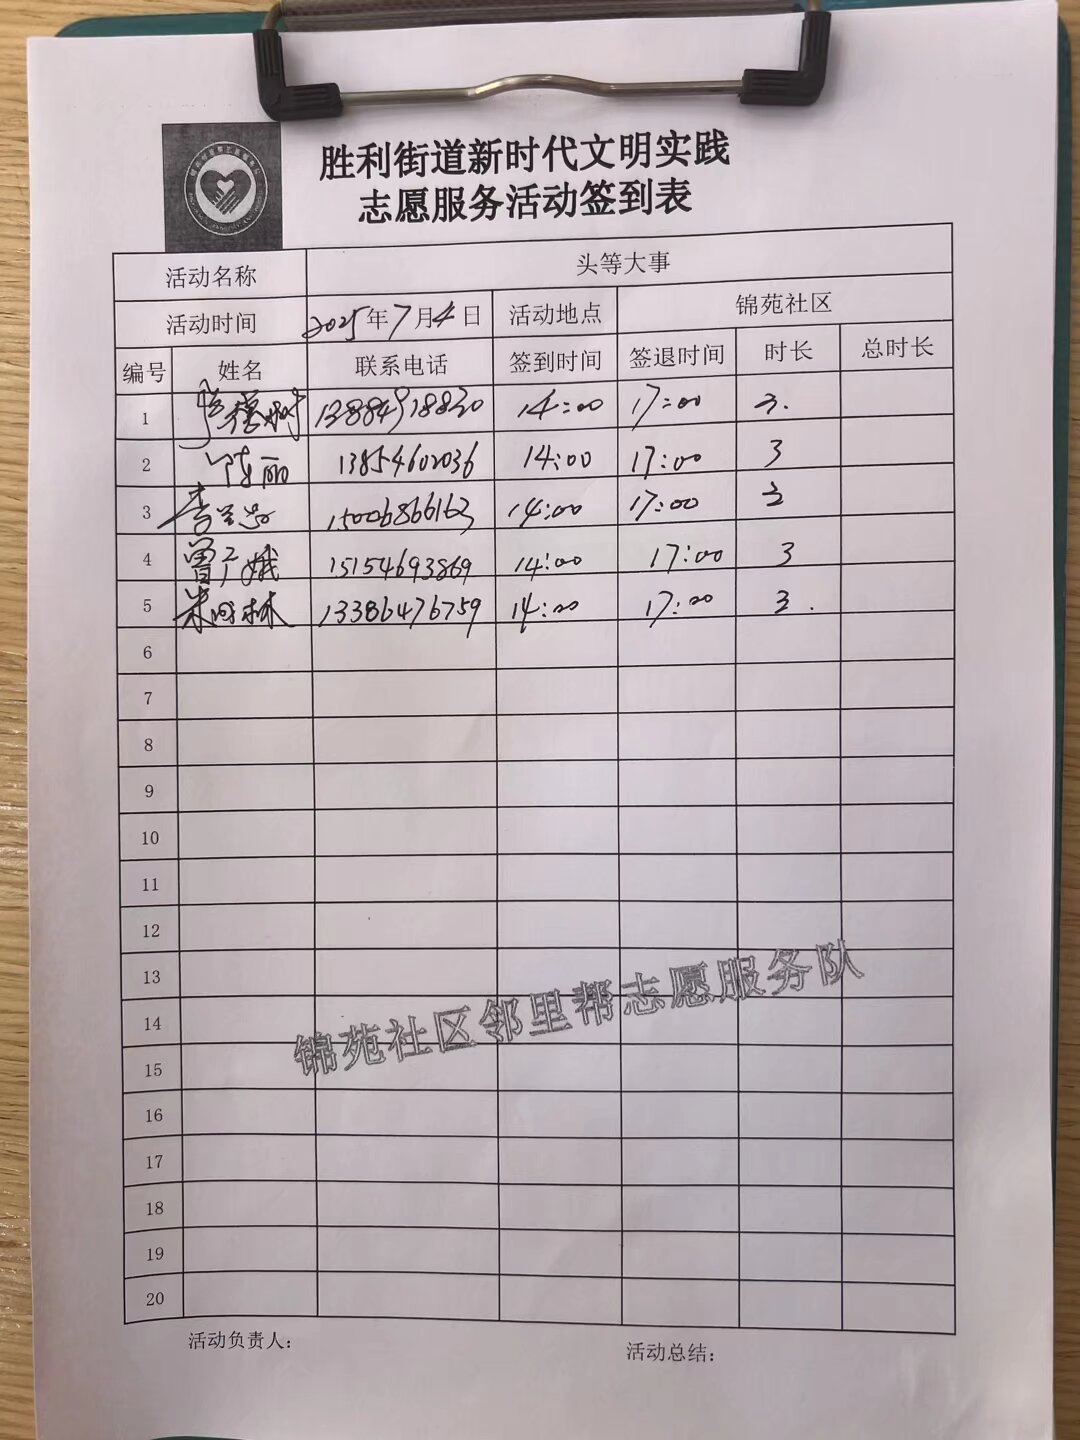 胜利街道新时代文明实践
志愿服务活动签到表
活动名称 头等大事
活动时间 2025年7月4日 活动地点 锦苑社区
编号 姓名 联系电话 签到时间 签退时间 时长 总时长
1 13884918830 14:00 17:00 3.
2 陈丽 13854602036 14:00 17:00 3
3 15006866163 14:00 17:00 3
4 曾广娥 15154693869 14:00 17:00 3
5 13386476759 14:00 17:00 3.
6
7
8
9
10
11
12
13
14
15
16
17
18
19
20
锦苑社区邻里帮志愿服务队
活动负责人: 活动总结: